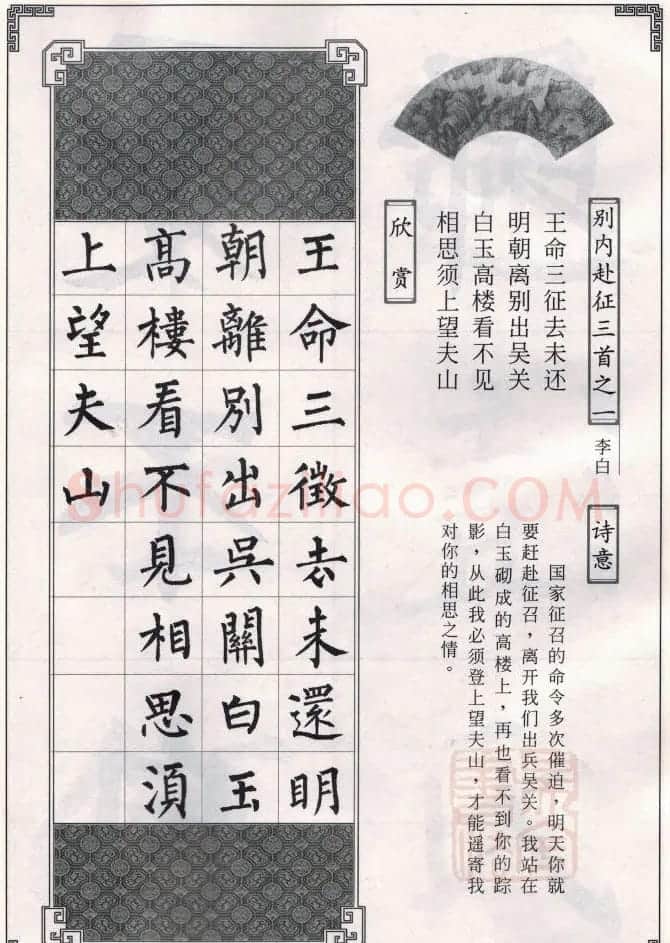 别内赴征三首之一
李白
王命三征去未还
明朝离别出吴关
白玉高楼看不见
相思须上望夫山
诗意
国家征召的命令多次催迫，明天你就
要赶赴征召，离开我们出兵吴关。我站在
白玉砌成的高楼上，再也看不到你的踪
影，从此我必须登上望夫山，才能遥寄我
对你的相思之情。
欣赏
王命三徵去未還明
朝離別出吳關白玉
高樓看不見相思須
上望夫山
Shufaziliao.COM